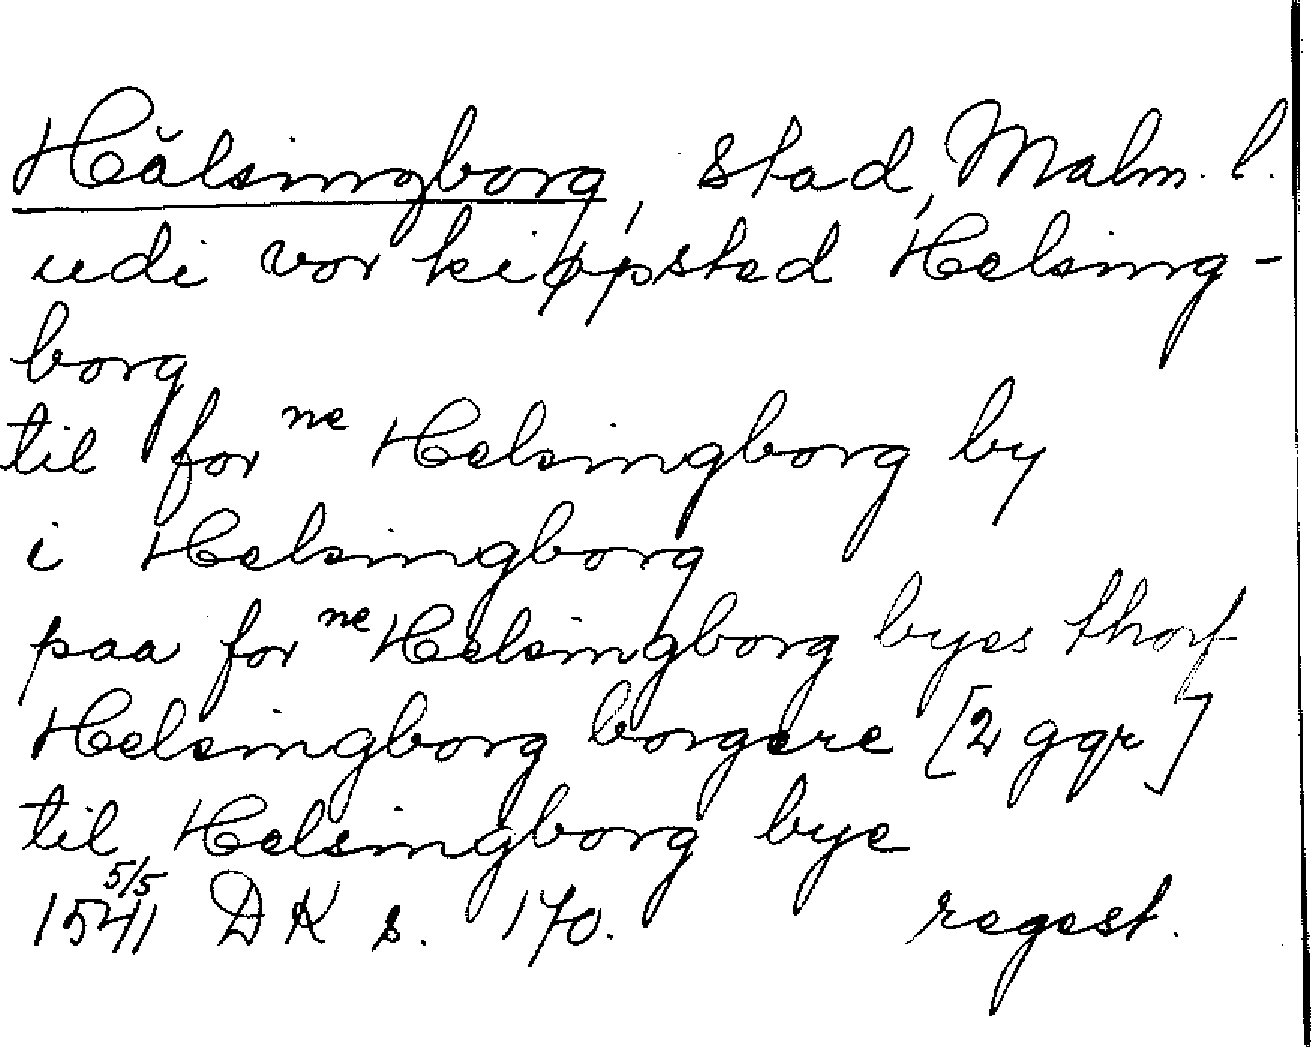 Hälsingborg, stad, Malm. l.
udi vor kiøpsted Helsing-
borg
til for ne Helsingborg by
i Helsingborg
paa for ne Helsingborg byes thorf
Helsingborg borgere [2 ggr]
til Helsingborg bye
1541 5/5 DK s. 170. regest.